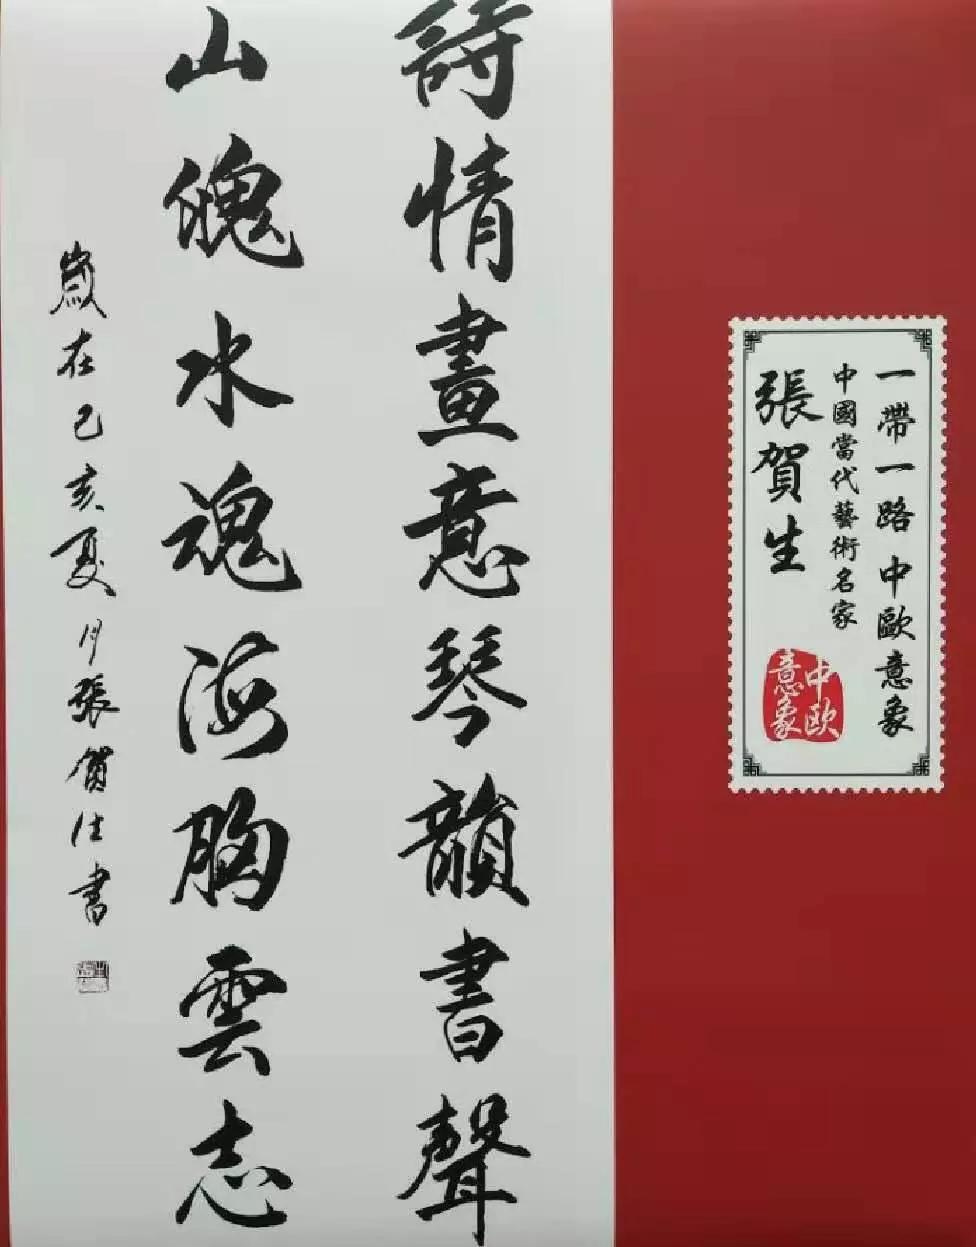 一帶一路中歐意象
中國當代藝術名家
張賀生
中欧
意象
詩情畫意琴韻書聲
山魄水魂海胸雲志
歲在己亥夏月張賀生書